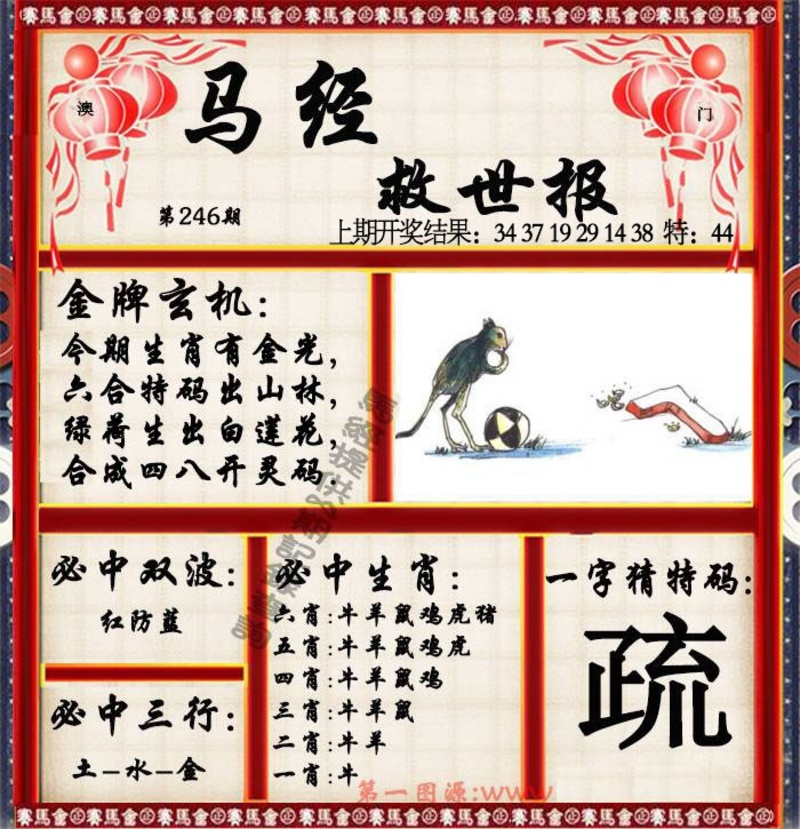 賽馬會㊣賽馬會㊣賽馬會㊣賽馬會㊣賽馬會㊣賽馬會㊣賽馬會㊣賽馬會㊣賽馬會
澳
门
马经
救世报
第246期
上期开奖结果：34 37 19 29 14 38 特：44
金牌玄机：
今期生肖有金光，
六合特码出山林，
绿荷生出白莲花，
合成四八开灵码．
必中双波：
红防蓝
必中三行：
土－水－金
必中生肖：
六肖：牛羊鼠鸡虎猪
五肖：牛羊鼠鸡虎
四肖：牛羊鼠鸡
三肖：牛羊鼠
二肖：牛羊
一肖：牛
一字猜特码：
疏
第一图源:www